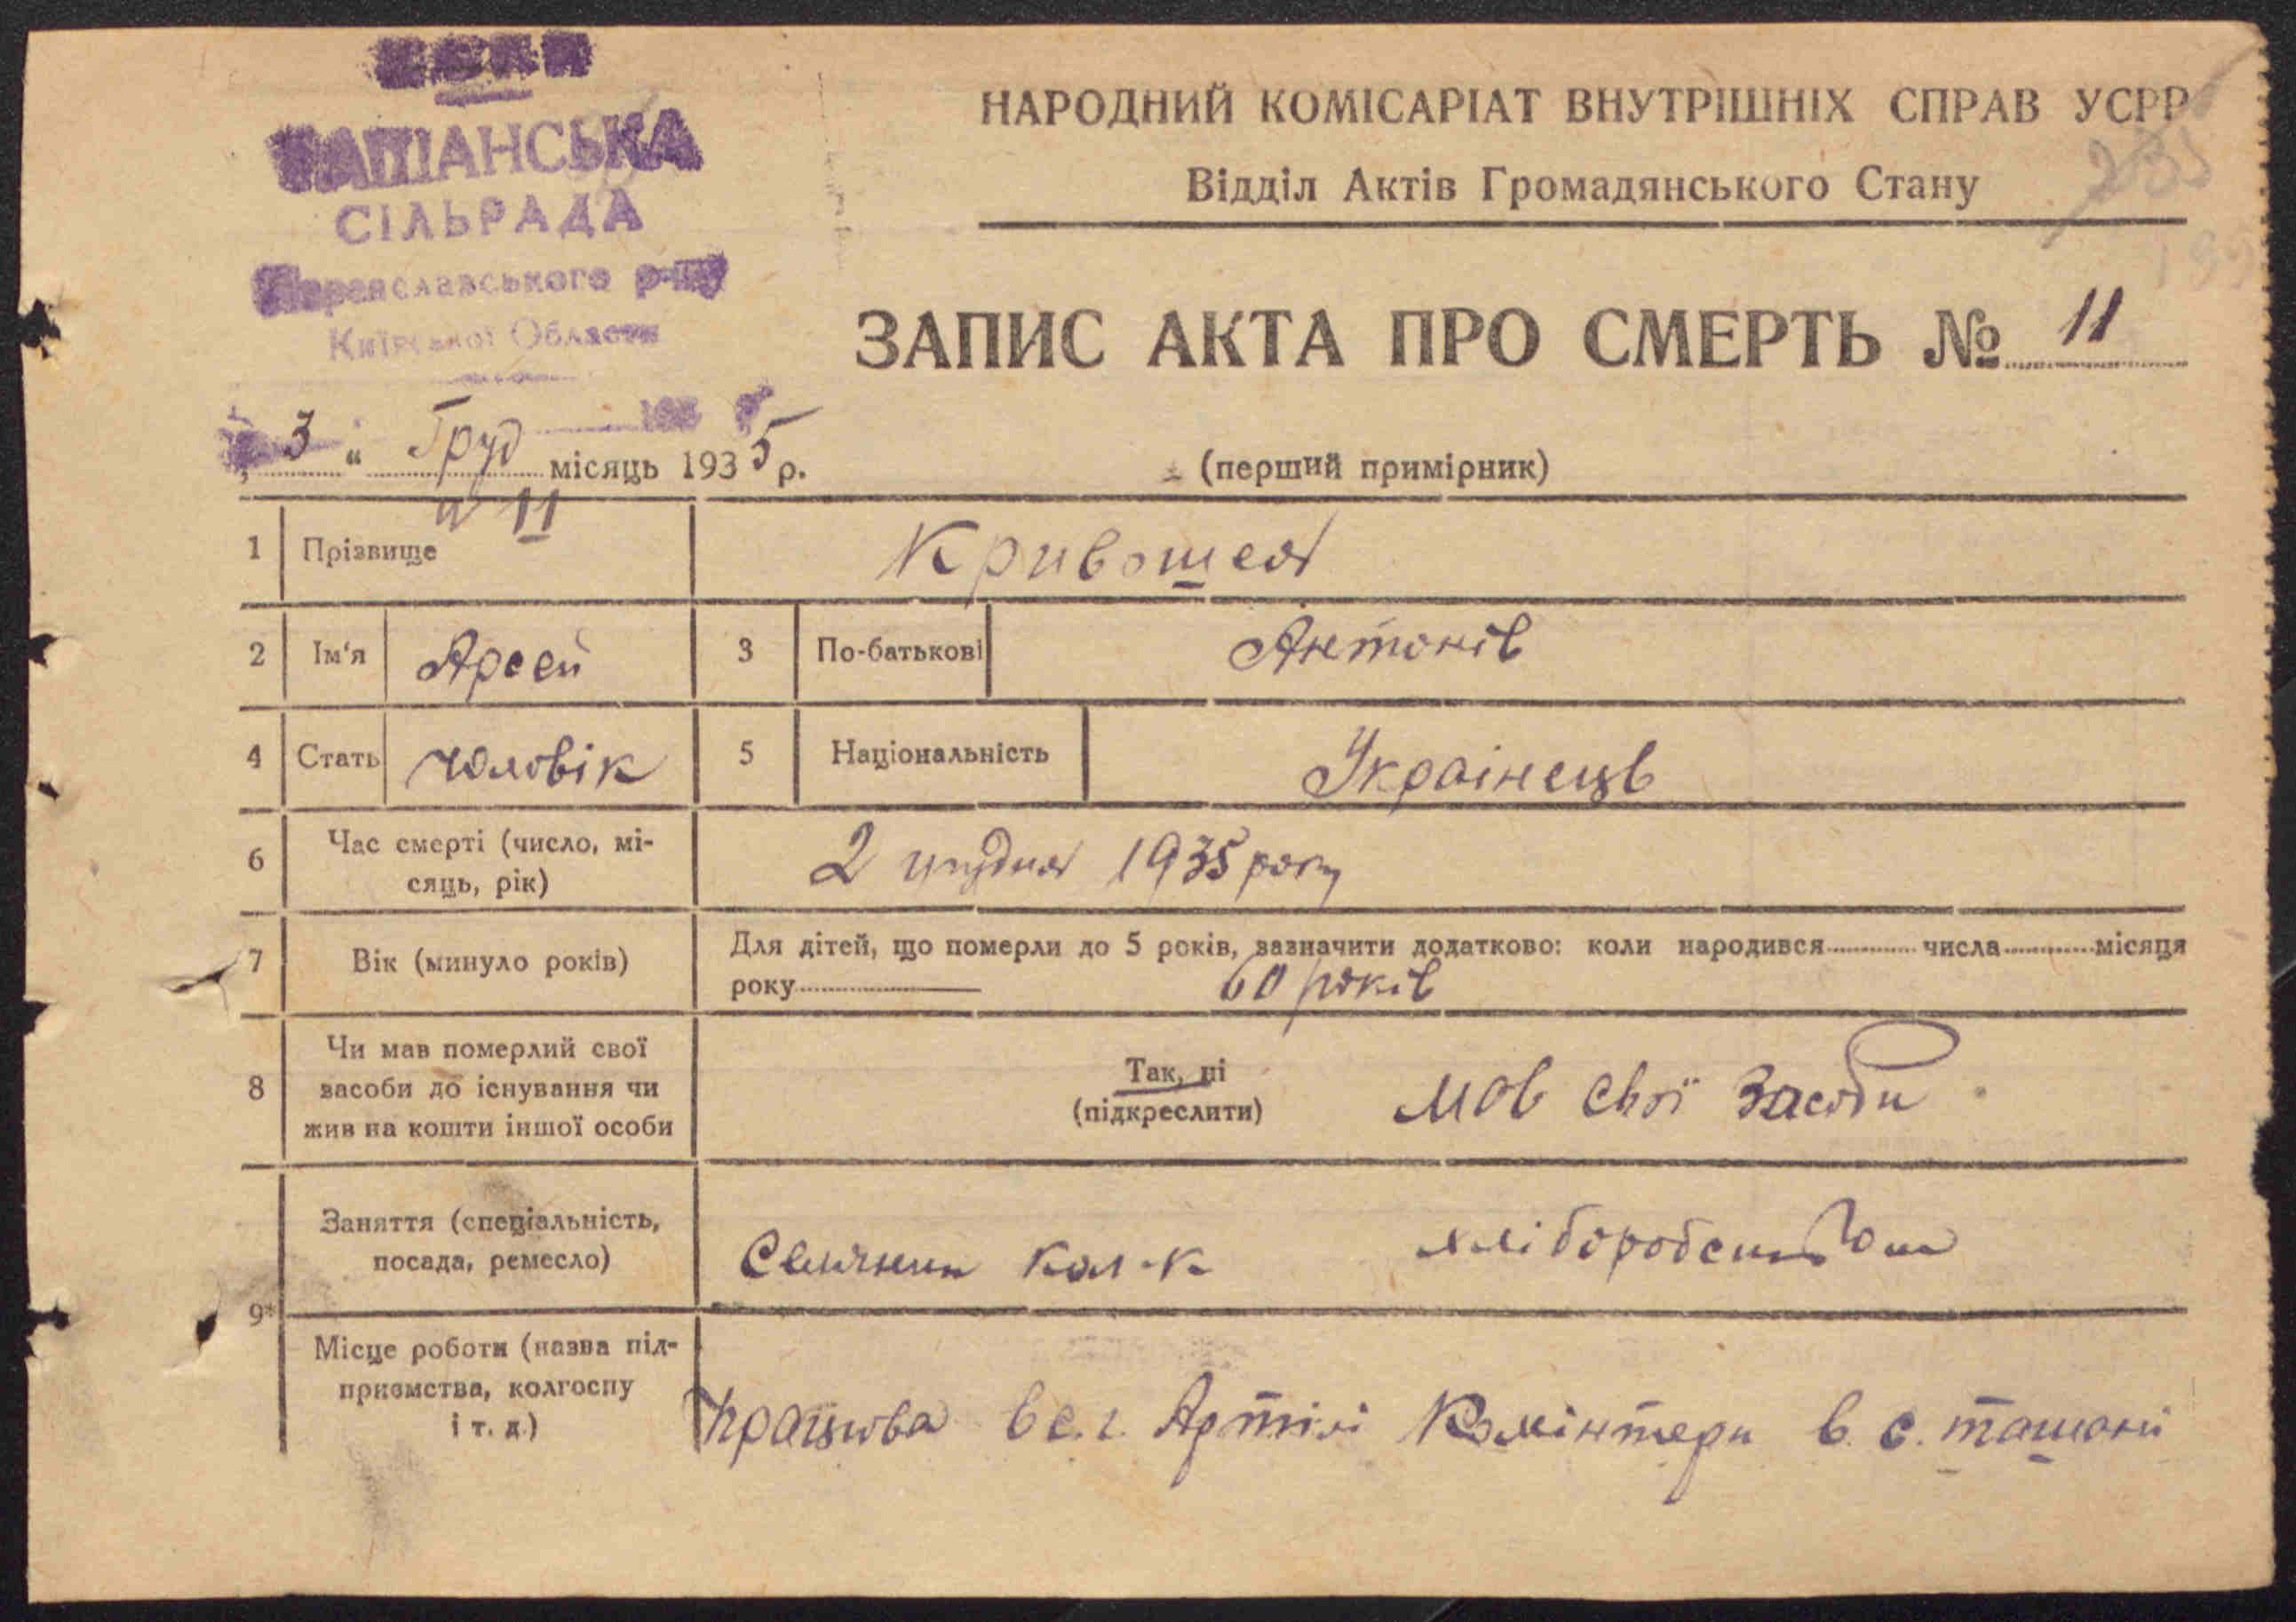 УСРР
ТАШАНСЬКА
СІЛЬРАДА
Переяславського р-ну
Київської Области
НАРОДНИЙ КОМІСАРІАТ ВНУТРІШНІХ СПРАВ УСРР
Відділ Актів Громадянського Стану
235
ЗАПИС АКТА ПРО СМЕРТЬ № 11
„ 3 “ Груд місяць 1935 р.
(перший примірник)
№ 11
1 Прізвище Кривошея
2 Ім'я Арсен 3 По-батькові Антонів
4 Стать чоловік 5 Національність Українець
6 Час смерті (число, мі-
сяць, рік) 2 грудня 1935 року
7 Вік (минуло років) Для дітей, що померли до 5 років, зазначити додатково: коли народився числа місяця
року 60 років
8 Чи мав померлий свої
засоби до існування чи
жив на кошти іншої особи
Так, ні
(підкреслити) мав свої засоби
9*
Заняття (спеціальність,
посада, ремесло) Селянин кол-к
Місце роботи (назва під-
приємства, колгоспу
і т. д.) Працював в с.г. Артілі Комінтерн в с. Ташані